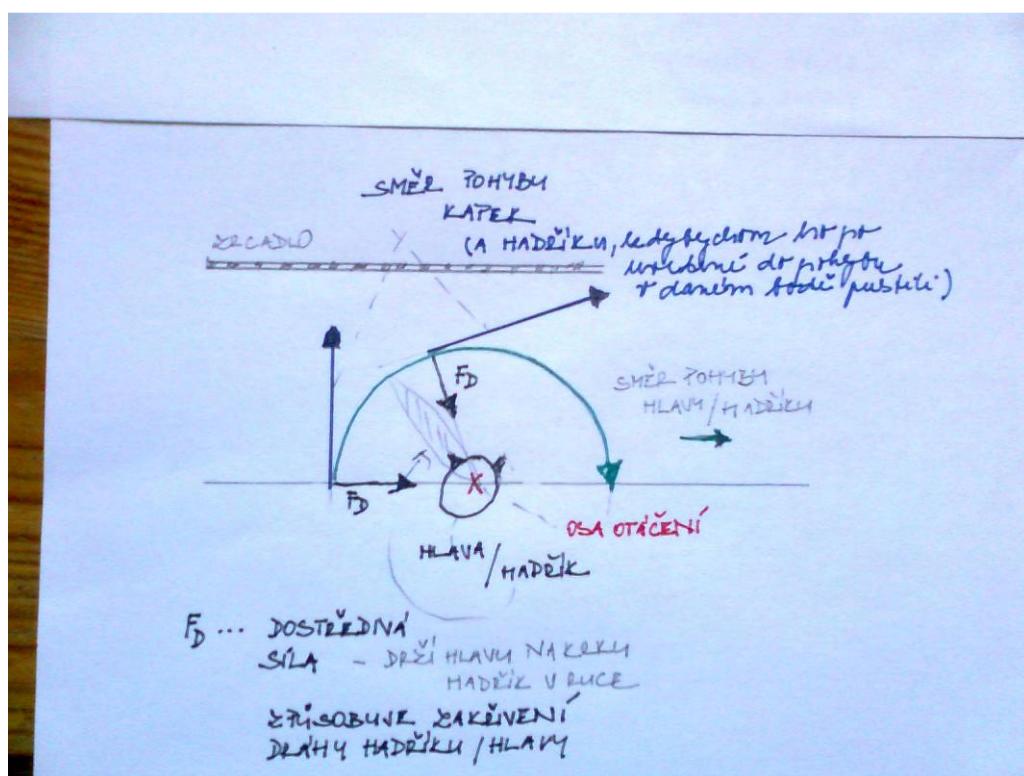 SMĚR POHYBU
KAPEK
(A HADŘÍKU, kdybychom ho po
uvedení do pohybu
v daném bodě pustili)
ZRCADLO
F_D
SMĚR POHYBU
HLAVY/HADŘÍKU
F_D
X
OSA OTÁČENÍ
HLAVA/HADŘÍK
F_D ... DOSTŘEDIVÁ
SÍLA - DRŽÍ HLAVU NA KRKU
HADŘÍK V RUCE
ZPŮSOBUJE ZAKŘIVENÍ
DRÁHY HADŘÍKU/HLAVY